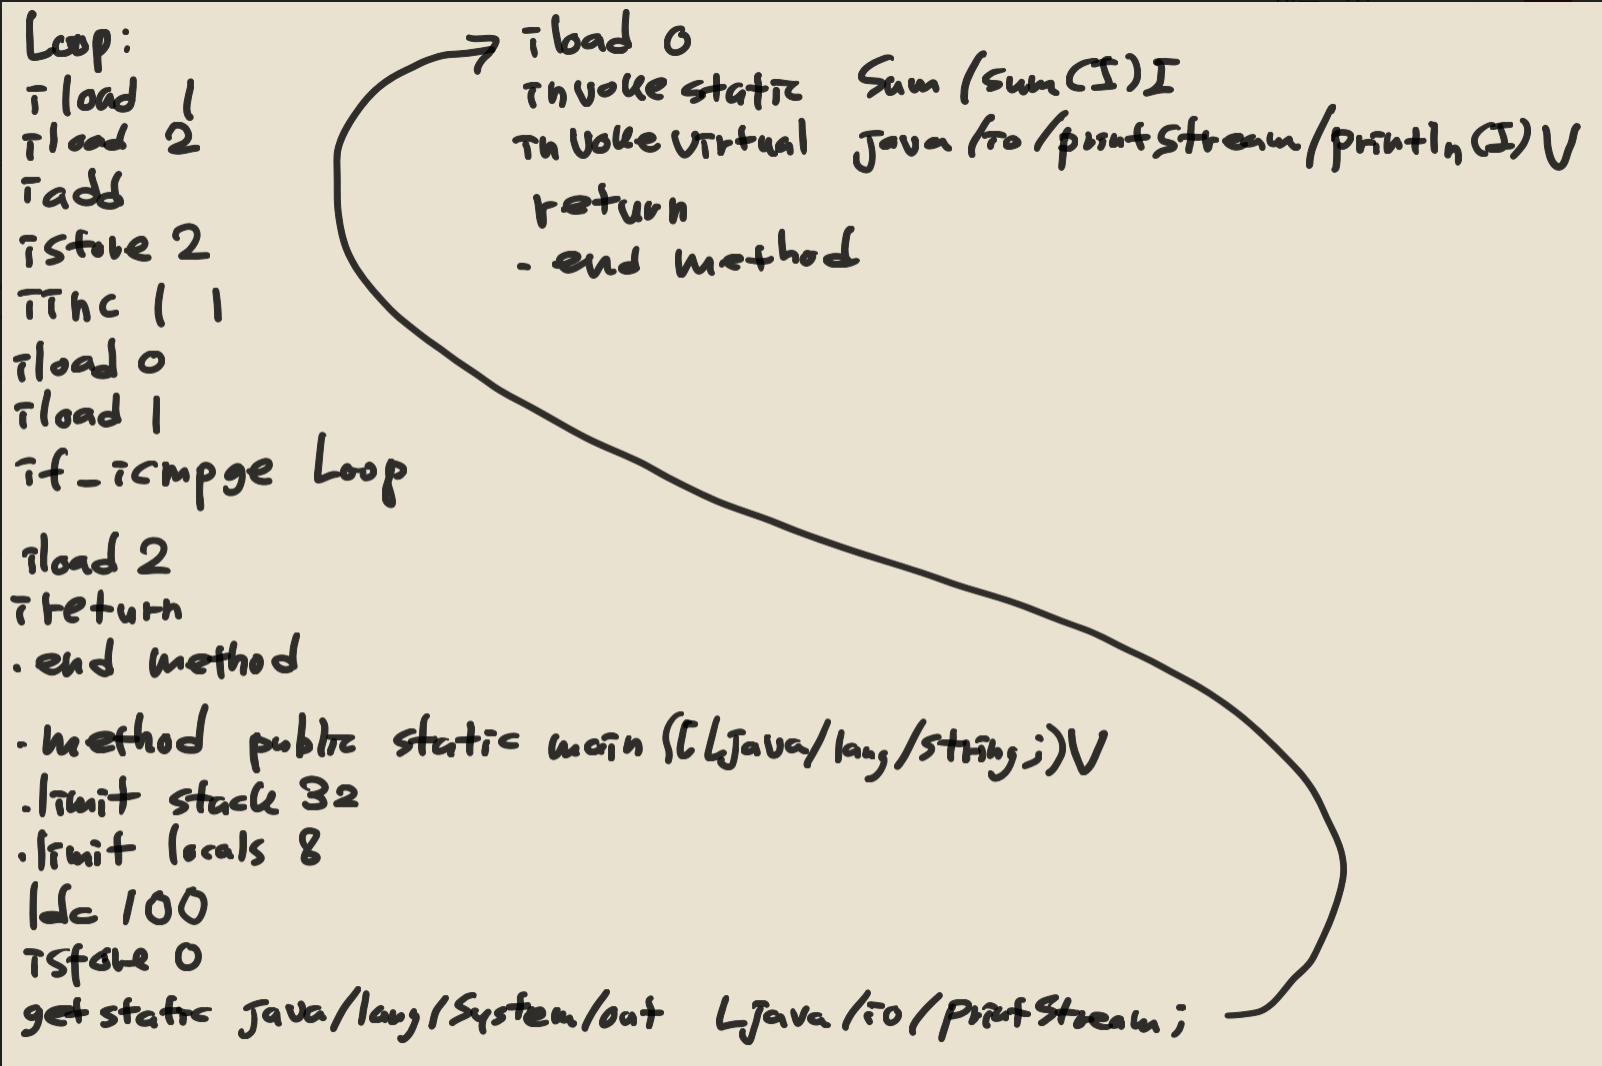 Loop:
iload 1
iload 2
iadd
istore 2
iinc 1 1
iload 0
iload 1
if_icmpge Loop
iload 2
ireturn
.end method
.method public static main ([Ljava/lang/string;)V
.limit stack 32
.limit locals 8
ldc 100
istore 0
getstatic java/lang/System/out Ljava/io/printStream;
iload 0
invoke static Sum/sum(I)I
invoke virtual java/io/printStream/println(I)V
return
.end method